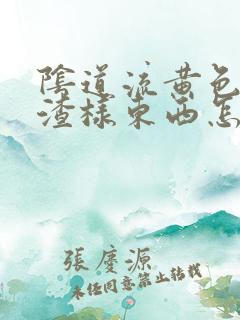 陰道流黄色
渣樣東西怎
張慶源
未经同意禁止转载